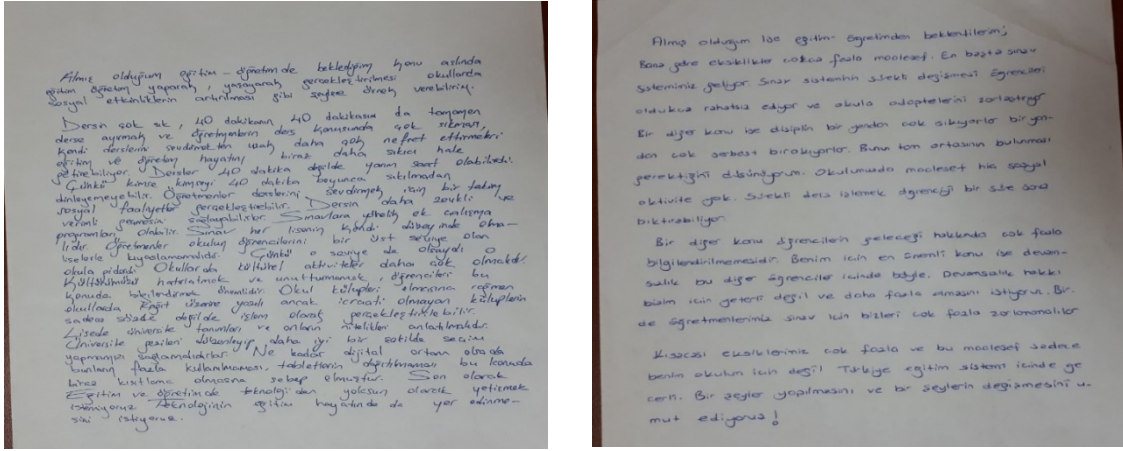 Almış olduğum eğitim - öğretimde beklediğim konu aslında
eğitim öğretim yaparak, yaşayarak gerçekleştirilmesi okullarda
sosyal etkinliklerin artırılması gibi şeylere örnek verebilirim.
Dersin çok sık, 40 dakikanın 40 dakikasın da tamamen
derse ayırmak ve öğretmenlerin ders konusunda çok sıkması,
kendi derslerin sevdirmekten uzak daha çok nefret ettirmeleri
eğitim ve öğretim hayatını biraz daha sıkıcı hale
getirebiliyor. Dersler 40 dakika değilde yarım saat olabilirdi.
Çünkü kimse kimseyi 40 dakika boyunca sıkılmadan
dinleyemeyebilir. Öğretmenler derslerini sevdirmek için bir takım
sosyal faaliyetler gerçekleştirebilir. Dersin daha zevkli ve
verimli geçmesini sağlayabilirler. Sınavlara yönelik ek çalışma
programları olabilir. Sınav her lisenin kendi düzeyinde olma-
lıdır. Öğretmenler okulun öğrencilerini bir üst seviye olan
liselerle kıyaslamamalıdır. Çünkü o seviye da olsaydı o
okula giderdi. Okullar da kültürel aktiviteler daha çok olmalıdır.
Kültürümüzü hatırlatmak ve unutturmamak, öğrencileri bu
konuda bilgilendirmek önemlidir. Okul kulüpleri olmasına rağmen
okullarda kağıt üzerine yazılı ancak icraati olmayan kulüplerin
sadece sözde değilde işlem olarak gerçekleştirilebilir.
Lisede üniversite tanımları ve onların nitelikler anlatılmalıdır.
Üniversite gezileri düzenleyip daha iyi bir şekilde seçim
yapmamızı sağlamalıdırlar. Ne kadar dijital ortam olsada
bunların fazla kullanılmaması, tabletlerin dağıtılmaması bu konuda
biraz kısıtlama olmasına sebep olmuştur. Son olarak
Eğitim ve öğretimde teknolojiden yoksun olarak yetişmek
istemiyoruz teknolojinin eğitim hayatında da yer edinme-
sini istiyoruz.
Almış olduğum lise eğitim- öğretimden beklentilerim;
Bana göre eksiklikler çokca fazla maalesef. En başta sınav
sistemimiz geliyor. Sınav sisteminin sürekli değişmesi öğrencileri
oldukca rahatsız ediyor ve okula adaptelerini zorlaştırıyor
Bir diğer konu ise disiplin bir yandan çok sıkıyorlar bir yan-
dan çok serbest bırakıyorlar. Bunun tam ortasının bulunması
gerektiğini düşünüyorum. Okulumuzda maalesef hiç sosyal
aktivite yok. Sürekli ders işlemek öğrenciyi bir süre sonra
bıktırabiliyor.
Bir diğer konu öğrencilerin geleceği hakkında çok fazla
bilgilendirilmemesidir. Benim için en önemli konu ise devam-
sızlık bu diğer öğrenciler içinde böyle. Devamsızlık hakkı
bizim için yeterli değil ve daha fazla olmasını istiyoruz. Bir
de öğretmenlerimiz sınav için bizleri çok fazla zorlamamalılar
Kısacası eksiklerimiz çok fazla ve bu maalesef sadece
benim okulum için değil Türkiye eğitim sistemi içinde ge
çerli. Bir şeyler yapılmasını ve bir şeylerin değişmesini u-
mut ediyoruz!